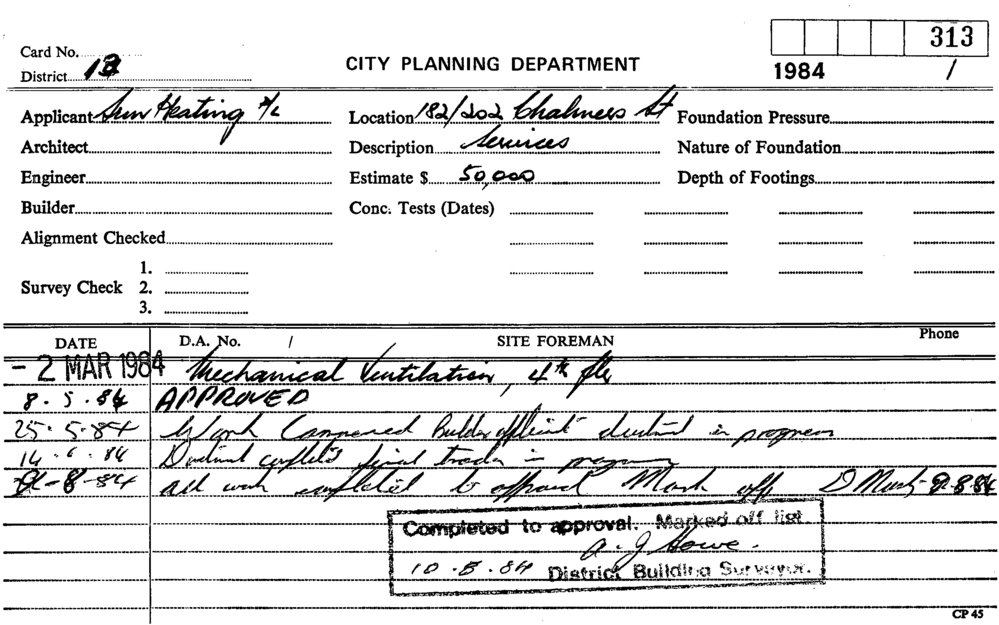 Card No. 313
District 13 CITY PLANNING DEPARTMENT 1984 /
Applicant Sun Heating P/L Location 182/202 Chalmers St Foundation Pressure
Architect Description Services Nature of Foundation
Engineer Estimate $ 50,000 Depth of Footings
Builder Conc. Tests (Dates)
Alignment Checked
1.
Survey Check 2.
3.
DATE D.A. No. / SITE FOREMAN Phone
- 2 MAR 1984 Mechanical Ventilation, 4th flr
8.5.84 APPROVED
25.5.84 Work Commenced Builder ductwork in progress
14.6.84 Ductwork complete final trades in progress
8-84 all work completed to approval Mark off D 9.8.84
Completed to approval. Marked off list.
A. J Howe.
10.8.84 District Building Surveyor.
CP 45